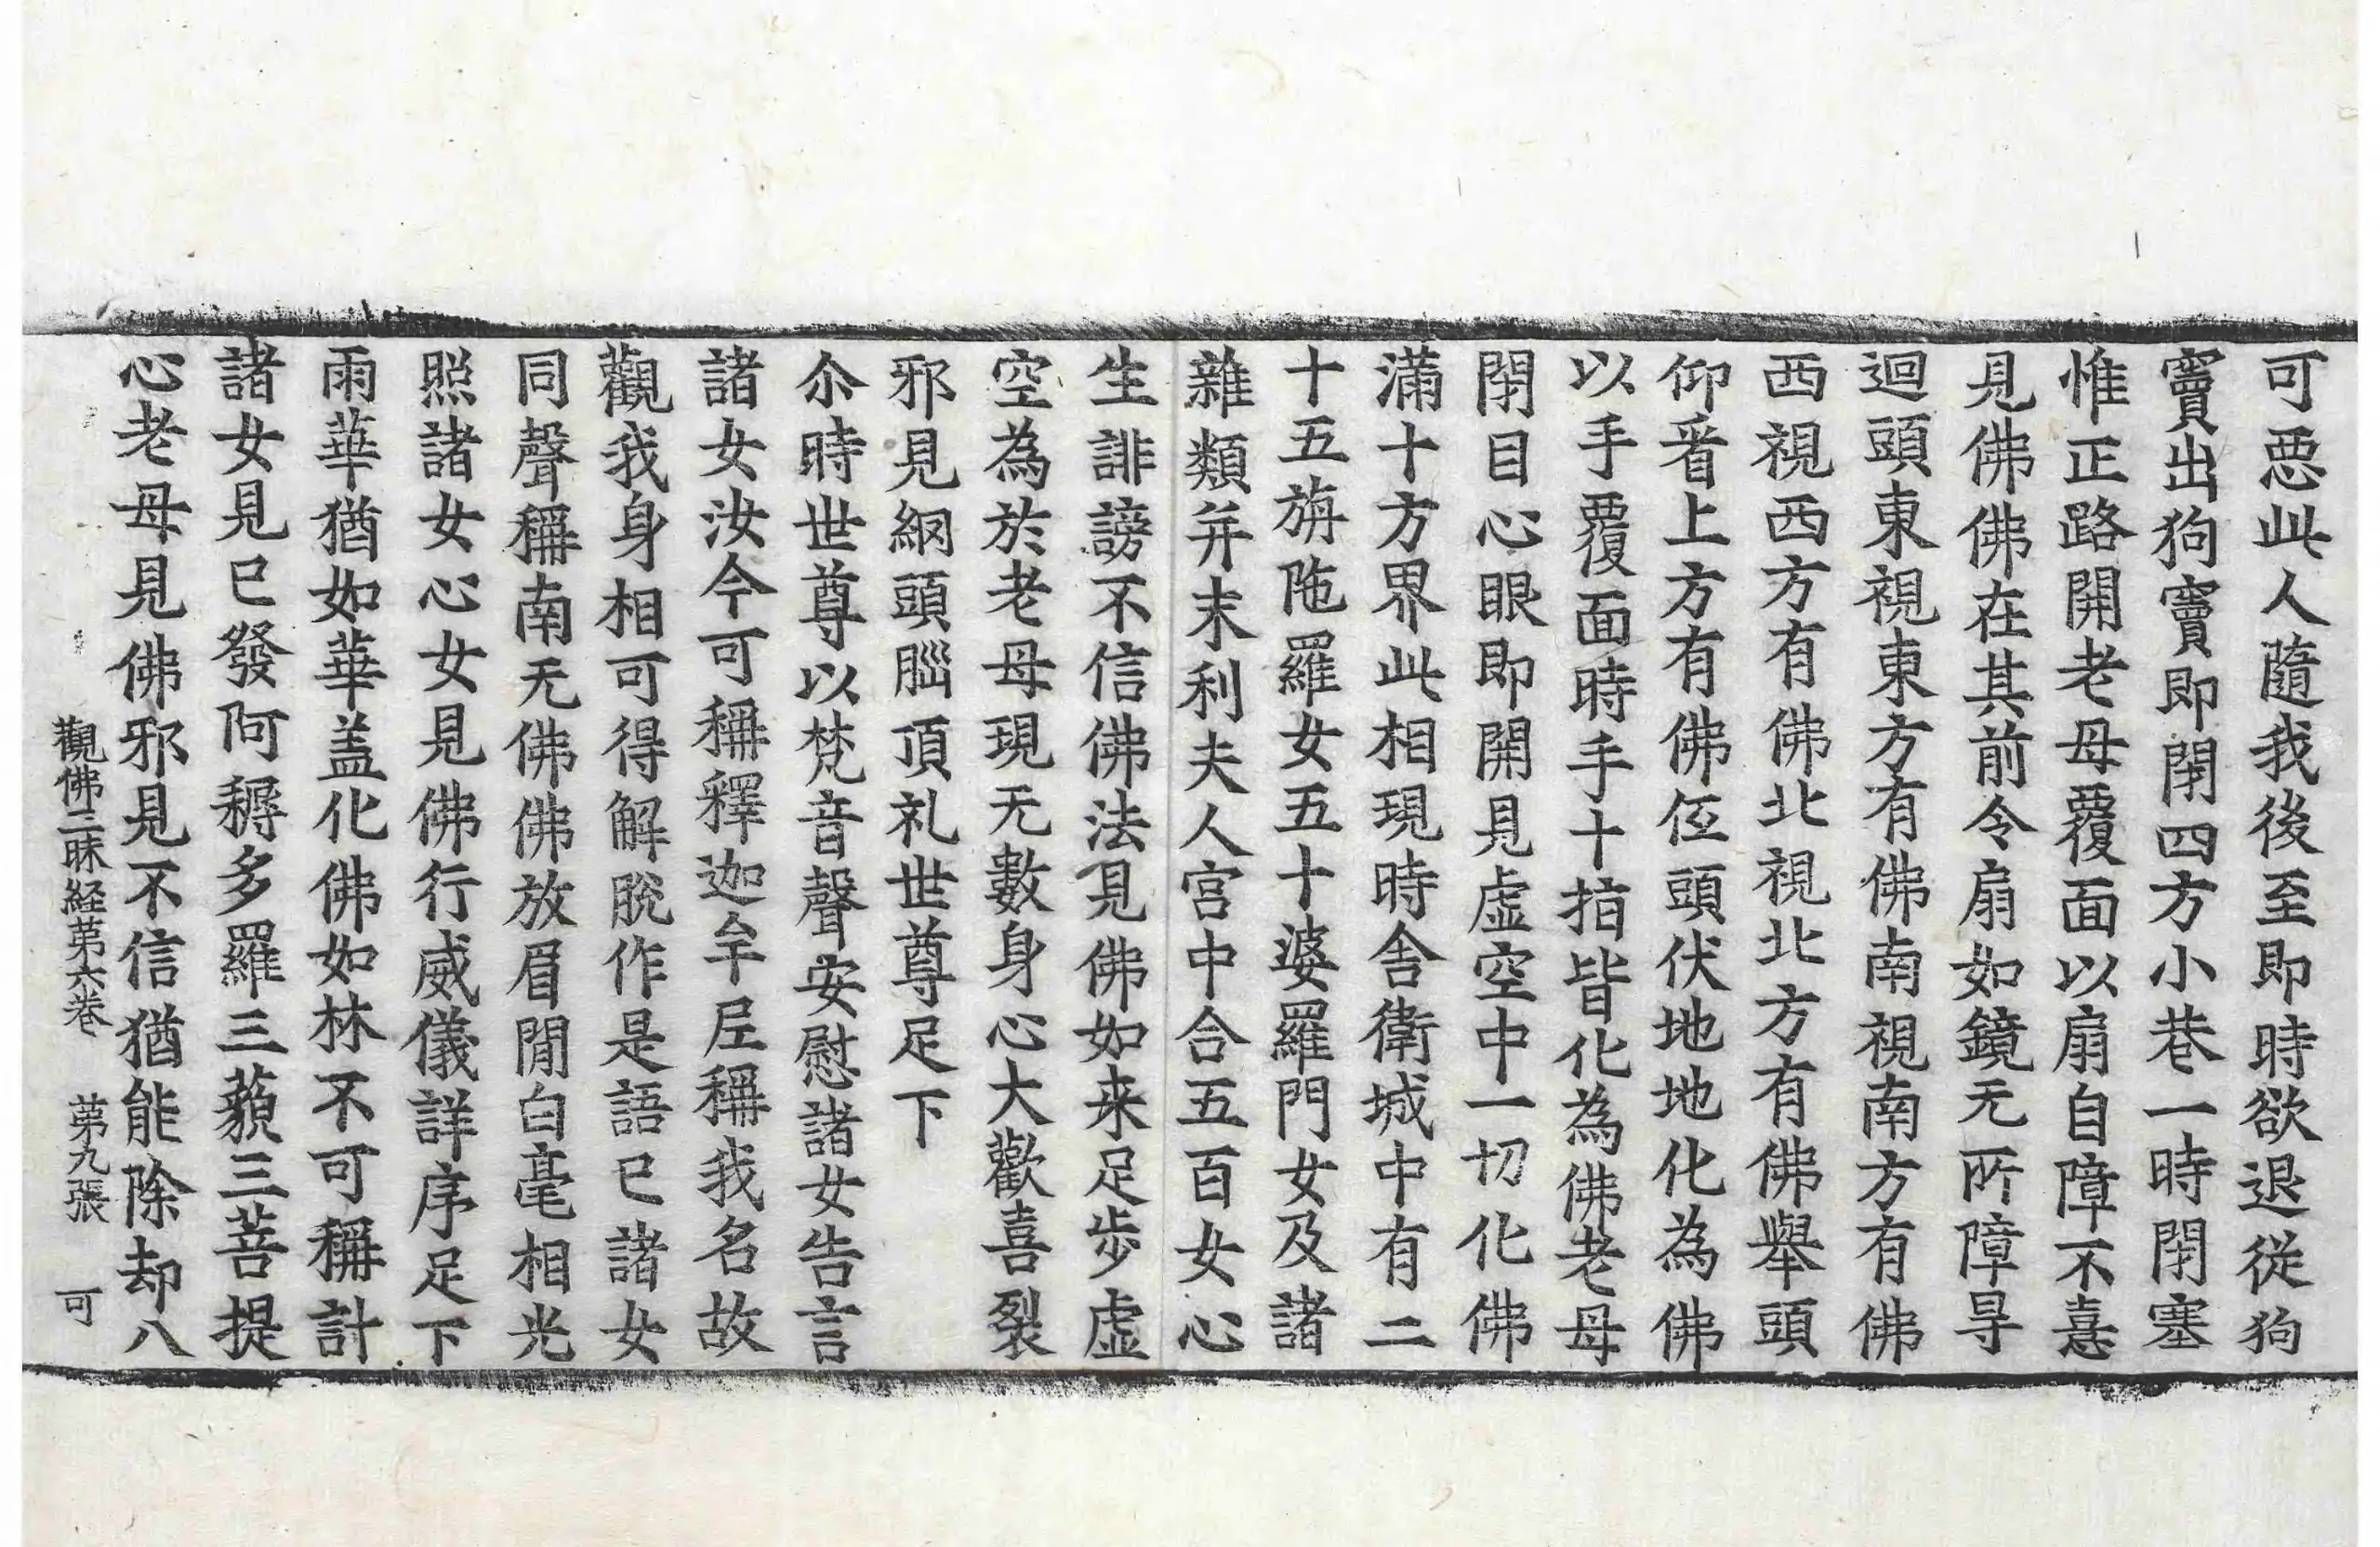 可恶此人隨我後至即時欲退從狗
竇出狗竇即閇四方小巷一時閇塞
惟正路開老母覆面以扇自障不憙
見佛佛在其前令扇如鏡无所障㝵
迴頭東視東方有佛南視南方有佛
西視西方有佛北視北方有佛舉頭
仰看上方有佛伍頭伏地地化為佛
以手覆面時手十指皆化為佛老母
閇目心眼即開見虛空中一切化佛
滿十方界此相現時舍衛城中有二
十五旃陁羅女五十婆羅門女及諸
雜類并末利夫人宮中合五百女心
生誹謗不信佛法見佛如来足步虛
空為於老母現无數身心大歡喜裂
邪見網頭腦頂礼世尊足下
尒時世尊以梵音聲安慰諸女告言
諸女汝今可稱釋迦牟尼稱我名故
觀我身相可得解脫作是語已諸女
同聲稱南无佛佛放眉間白毫相光
照諸女心女見佛行威儀詳序足下
雨華猶如華盖化佛如林不可稱計
諸女見已發阿耨多羅三藐三菩提
心老母見佛邪見不信猶能除却八
觀佛三昧経苐六巻 苐九張 可